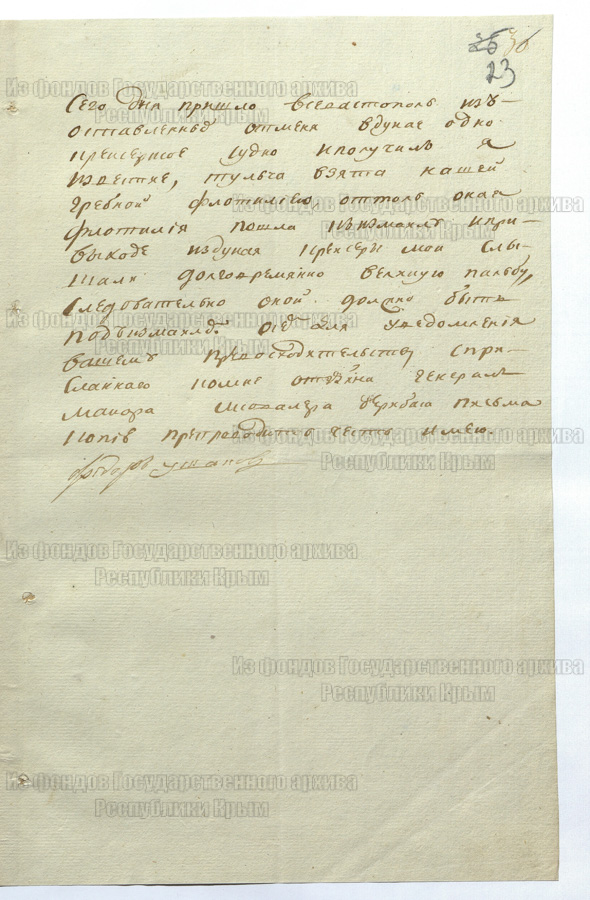 36
23
Сего дня пришло всевастополь изъ
оставленныхъ отменя вдунае одно
крейсерное судно иполучилъ я
известие, тульча взята нашей
гребной флотилиею оттоль оная
флотилия пошла кизмаилу ипри
выходе издуная крейсеры мои слы
шали долговремянно великую пальбу,
следовательно оной должно быть
подъизмаиломъ. уведомления
вашему превосходительству спри
сланнаго комне генералъ
маиора икавалера Дерибаса письма
копию препроводить честь имею.
Федоръ Ушаковъ
Из фондов Государственного архива
Республики Крым
Из фондов Государственного архива
Республики Крым
Из фондов Государственного архива
Республики Крым
Из фондов Государственного архива
Республики Крым
Из фондов Государственного архива
Республики Крым
Из фондов Государственного архива
Республики Крым
Из фондов Государственного архива
Республики Крым